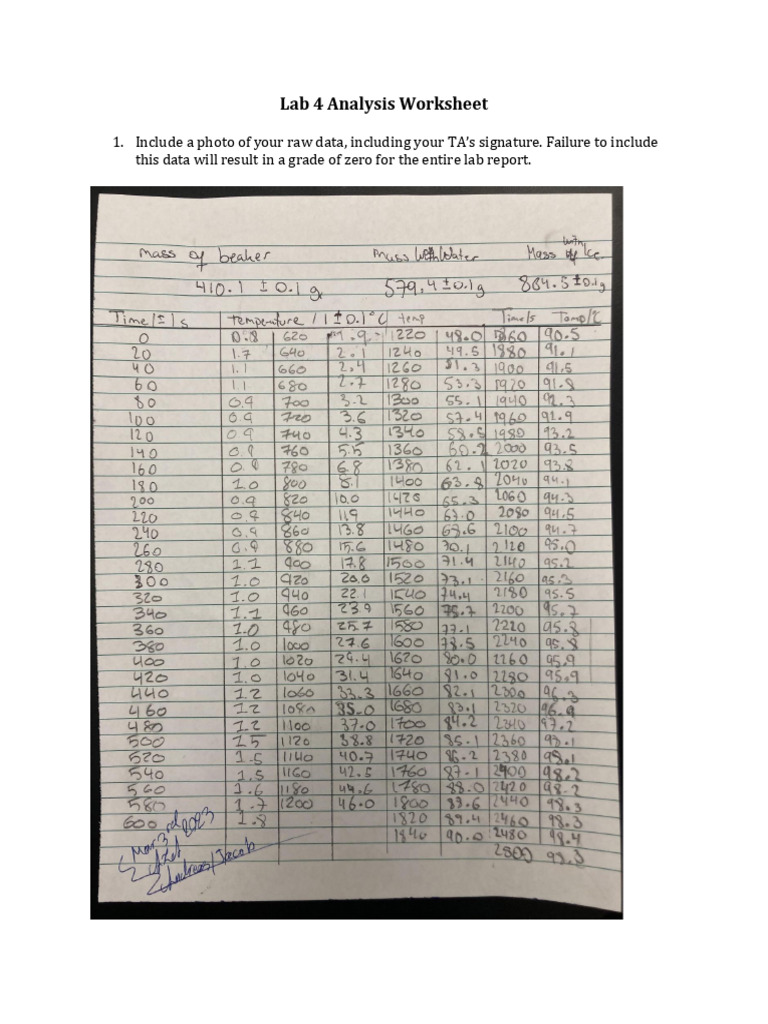 Lab 4 Analysis Worksheet
1. Include a photo of your raw data, including your TA's signature. Failure to include
this data will result in a grade of zero for the entire lab report.
mass of beaker Mass with Water Mass with Ice
410.1 ± 0.1 g 579.4 ± 0.1 g 864.5 ± 0.1g
Time/±1s temperature /1 ± 0.1°C temp Time/s Temp/°C
0 0.8 620 1.9 1220 48.0 1860 90.5
20 1.7 640 2.1 1240 49.5 1880 91.1
40 1.1 660 2.4 1260 51.3 1900 91.5
60 1.1 680 2.7 1280 53.3 1920 91.8
80 0.9 700 3.2 1300 55.1 1940 92.3
100 0.9 720 3.6 1320 57.4 1960 92.9
120 0.9 740 4.3 1340 58.5 1980 93.2
140 0.9 760 5.5 1360 60.2 2000 93.5
160 0.8 780 6.8 1380 62.1 2020 93.8
180 1.0 800 8.1 1400 63.8 2040 94.1
200 0.9 820 10.0 1420 65.3 2060 94.3
220 0.9 840 11.9 1440 67.0 2080 94.5
240 0.9 860 13.8 1460 68.6 2100 94.7
260 0.9 880 15.6 1480 70.1 2120 95.0
280 1.1 900 17.8 1500 71.4 2140 95.2
300 1.0 920 20.0 1520 73.1 2160 95.3
320 1.0 940 22.1 1540 74.4 2180 95.5
340 1.1 960 23.9 1560 75.7 2200 95.7
360 1.0 980 25.7 1580 77.1 2220 95.8
380 1.0 1000 27.6 1600 78.5 2240 95.8
400 1.0 1020 29.4 1620 80.0 2260 95.9
420 1.0 1040 31.4 1640 81.0 2280 95.9
440 1.2 1060 33.3 1660 82.1 2300 96.3
460 1.2 1080 35.0 1680 83.1 2320 96.9
480 1.2 1100 37.0 1700 84.2 2340 97.2
500 1.5 1120 38.8 1720 85.1 2360 98.1
520 1.5 1140 40.7 1740 86.2 2380 98.1
540 1.5 1160 42.5 1760 87.1 2400 98.2
560 1.6 1180 44.6 1780 88.0 2420 98.2
580 1.7 1200 46.0 1800 88.6 2440 98.3
600 1.8 1820 89.4 2460 98.3
1840 90.0 2480 98.4
2500 98.3
Mar 3rd 2023
Jacob